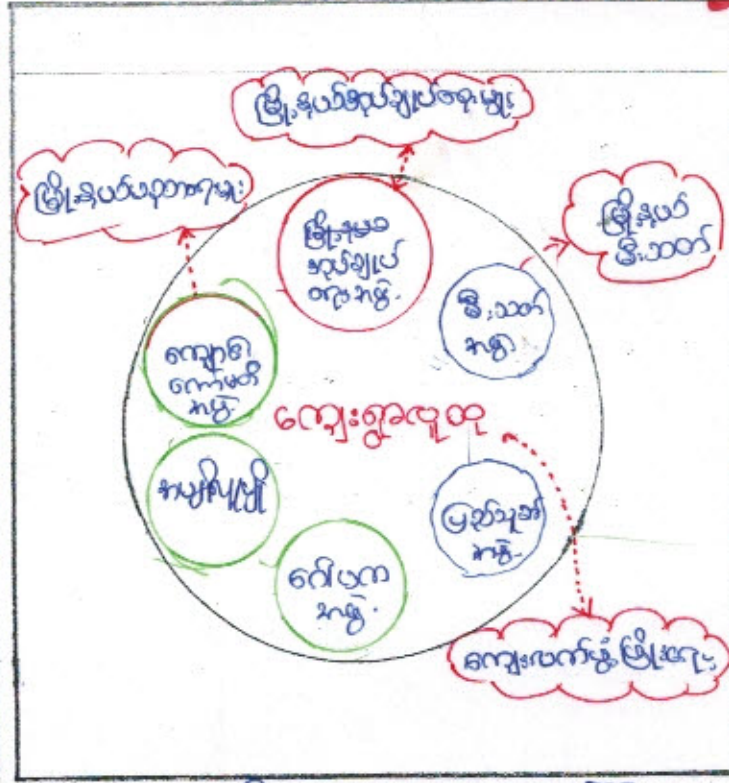 မြို့နယ်အုပ်ချုပ်ရေးမှူး
မြို့နယ်ပညာရေးမှူး
မြို့နယ်
မီးသတ်
အုပ်ချုပ်
ရေးအဖွဲ့
မီးသတ်
အဖွဲ့
ကျောင်း
ကော်မတီ
အဖွဲ့
ကျေးရွာလူထု
ပြည်သူ့စစ်
အဖွဲ့
ဂေါပက
အဖွဲ့
ကျေးလက်ဖွံ့ဖြိုးရေး